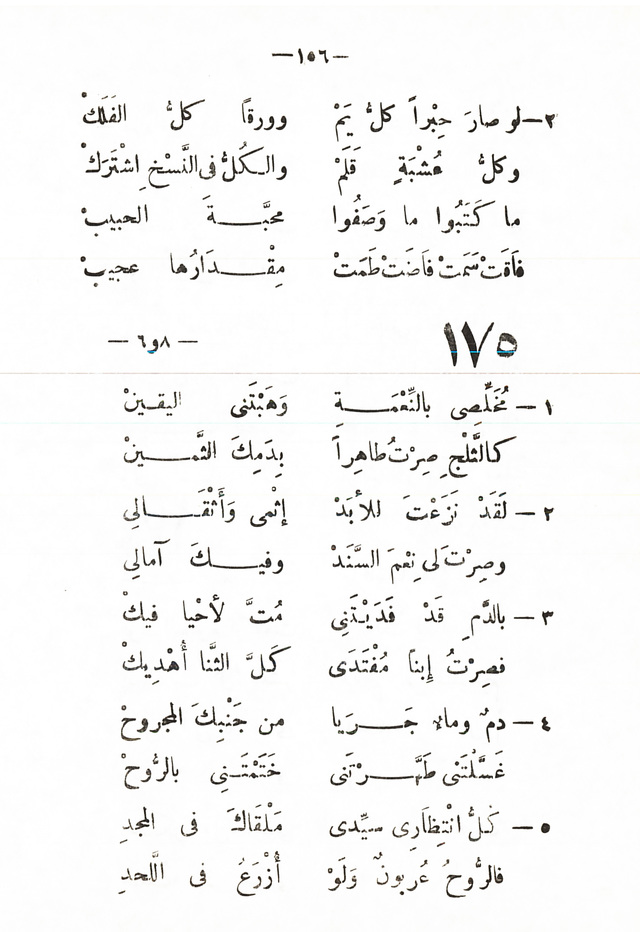 —١٥٦—
٣— لو صارَ حِبْراً كلُّ يَمْ ووورقاً كلُّ الفَلَكْ
وكلُّ عُشْبَةٍ قَلَمْ والكُلُّ فى النَّسْخِ اِشْتَرَكْ
ما كَتَبُوا ما وَصَفُوا محبَّـــةَ الحبيبْ
فَاقَتْ سَمَتْ فَاضَتْ طَمَتْ مِقْــدَارُها عجيبْ
١٧٥ — ٨و٦ —
١ — مُخَلِّصِى بالنِّعْمَـــةِ وَهَبْتَنى اليقـينْ
كالثَّلْجِ صِرْتُ طاهِراً بِدَمِكَ الثَّمـــينْ
٢ — لَقَدْ نَزَعْتَ للأبَدْ إثْمى وَأَثْقَـــالِى
وصِرْتَ لى نِعْمَ السَّنَدْ وفيـــكَ آمالِى
٣ — بالدَّمِ قَدْ فَدَيْـتَنِى مُتَّ لأحْيا فيكْ
فصِرْتُ إبناً مُفْتَدَى كَلَّ الثَّنا أُهْدِيكْ
٤ — دمٌ وماءٌ جَـــرَيا من جَنْبِكَ المجروحْ
غَسَّلْتَنْى طَهَّـــرْتَنى خَتَمْتَـنِى بالرُّوحْ
٥ — كلُّ انْتِظَارِى سيِّدى مَلْقَاكَ فى المجدِ
فالرُّوحُ عُربونٌ وَلَوْ أُزْرَعُ فى الَّلحدِ